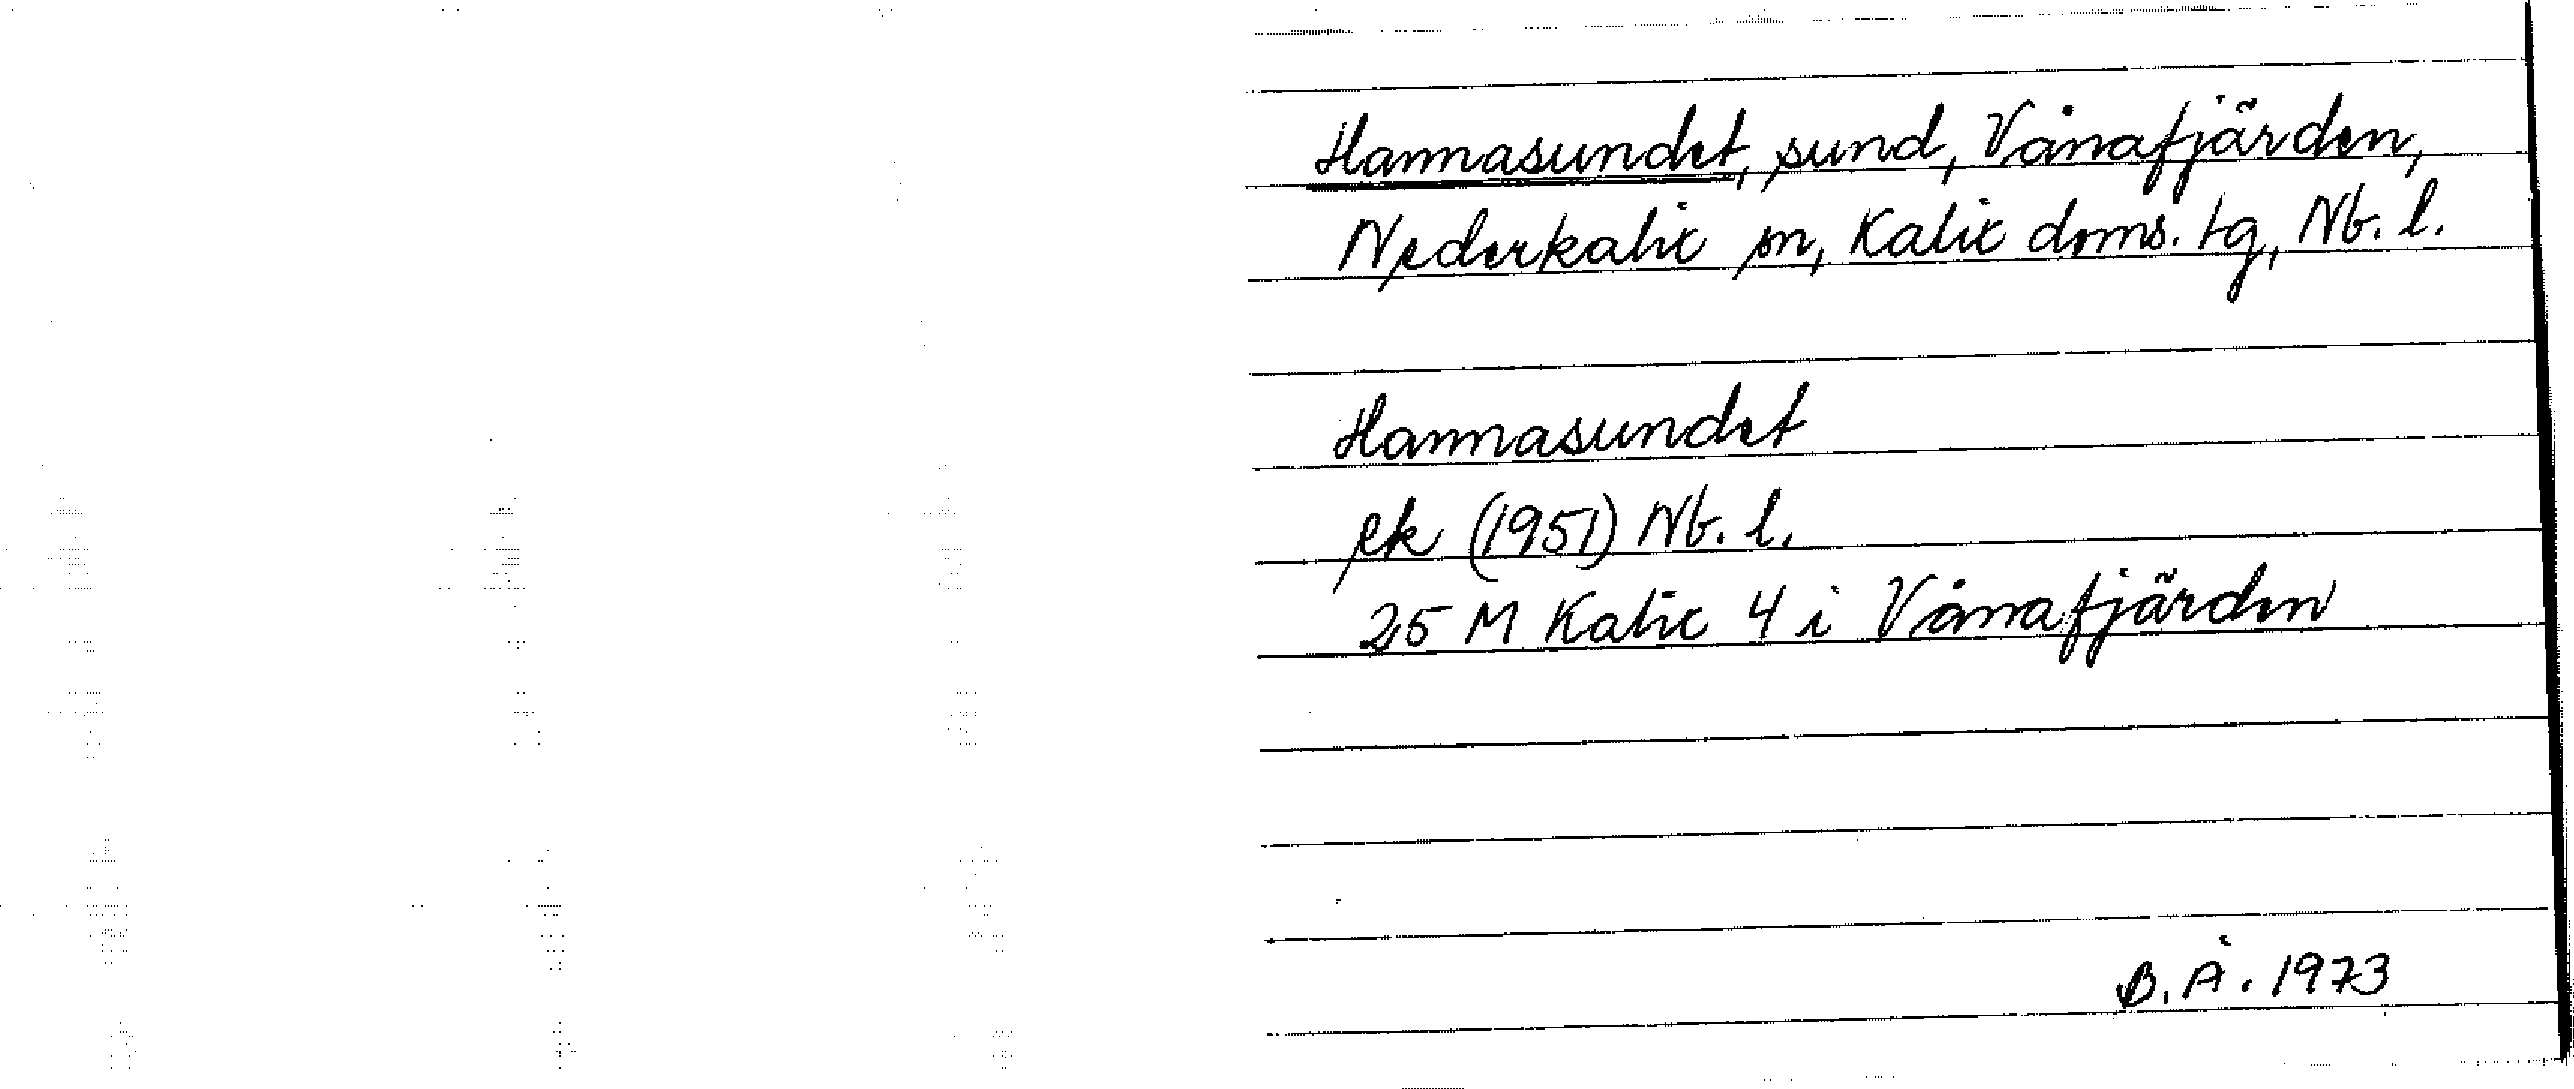 Hannasundet, sund, Vånafjärden,
Nederkalix sn, Kalix doms. tg, Nb. l.
Hannasundet
ek (1951) Nb. l.
25 M Kalix 4 i Vånafjärden
B. Å. 1973